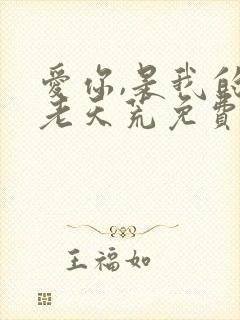 爱你,是我的
老天荒免费
王福如